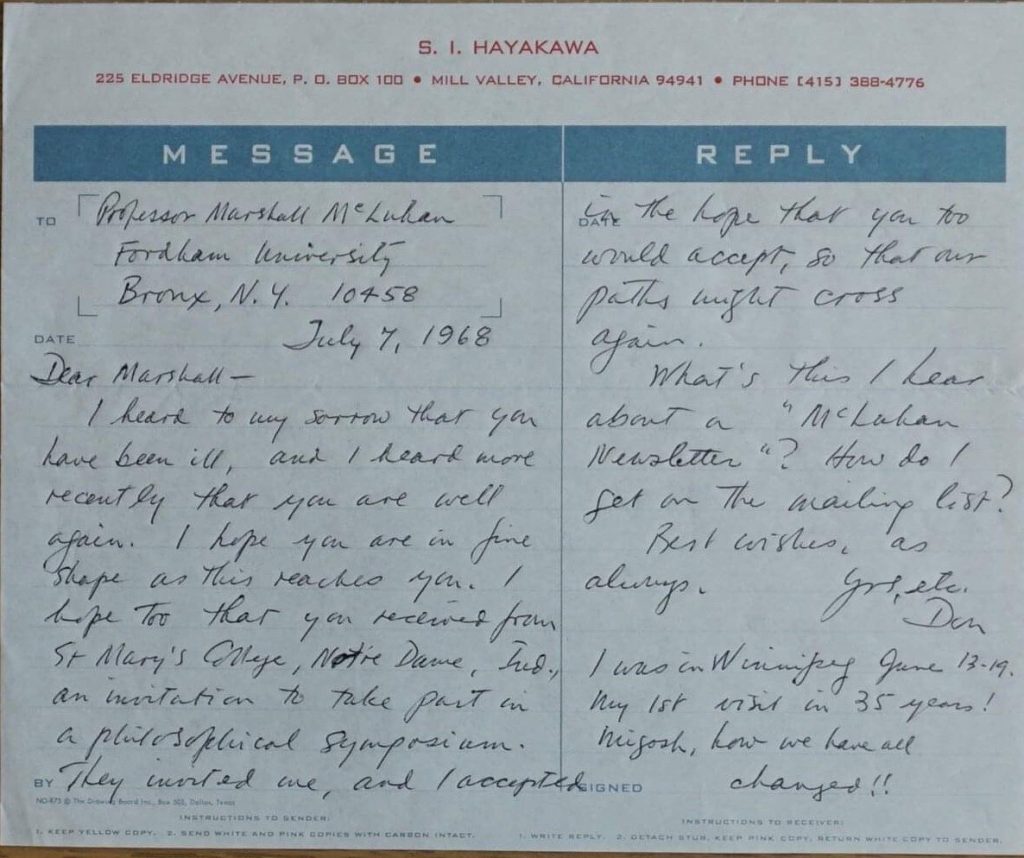 S. I. HAYAKAWA
225 ELDRIDGE AVENUE, P. O. BOX 100 • MILL VALLEY, CALIFORNIA 94941 • PHONE (415) 388-4776
MESSAGE
TO
Professor Marshall McLuhan
Fordham University
Bronx, N.Y. 10458
DATE
July 7, 1968
Dear Marshall—
I heard to my sorrow that you
have been ill, and I heard more
recently that you are well
again. I hope you are in fine
shape as this reaches you. I
hope too that you received from
St Mary's College, Notre Dame, Ind.,
an invitation to take part in
a philosophical symposium.
BY They invited me, and I accepted
NO-R73 © The Drawing Board Inc., Box 505, Dallas, Texas
INSTRUCTIONS TO SENDER:
1. KEEP YELLOW COPY. 2. SEND WHITE AND PINK COPIES WITH CARBON INTACT.
REPLY
DATE
in the hope that you too
would accept, so that our
paths might cross
again.
What's this I hear
about a "McLuhan
Newsletter"? How do I
get on the mailing list?
Best wishes, as
always. Yrs, etc.
Don
I was in Winnipeg June 13-19.
My 1st visit in 35 years!
Migosh, how we have all
SIGNED changed!!
INSTRUCTIONS TO RECEIVER:
1. WRITE REPLY. 2. DETACH STUB, KEEP PINK COPY, RETURN WHITE COPY TO SENDER.